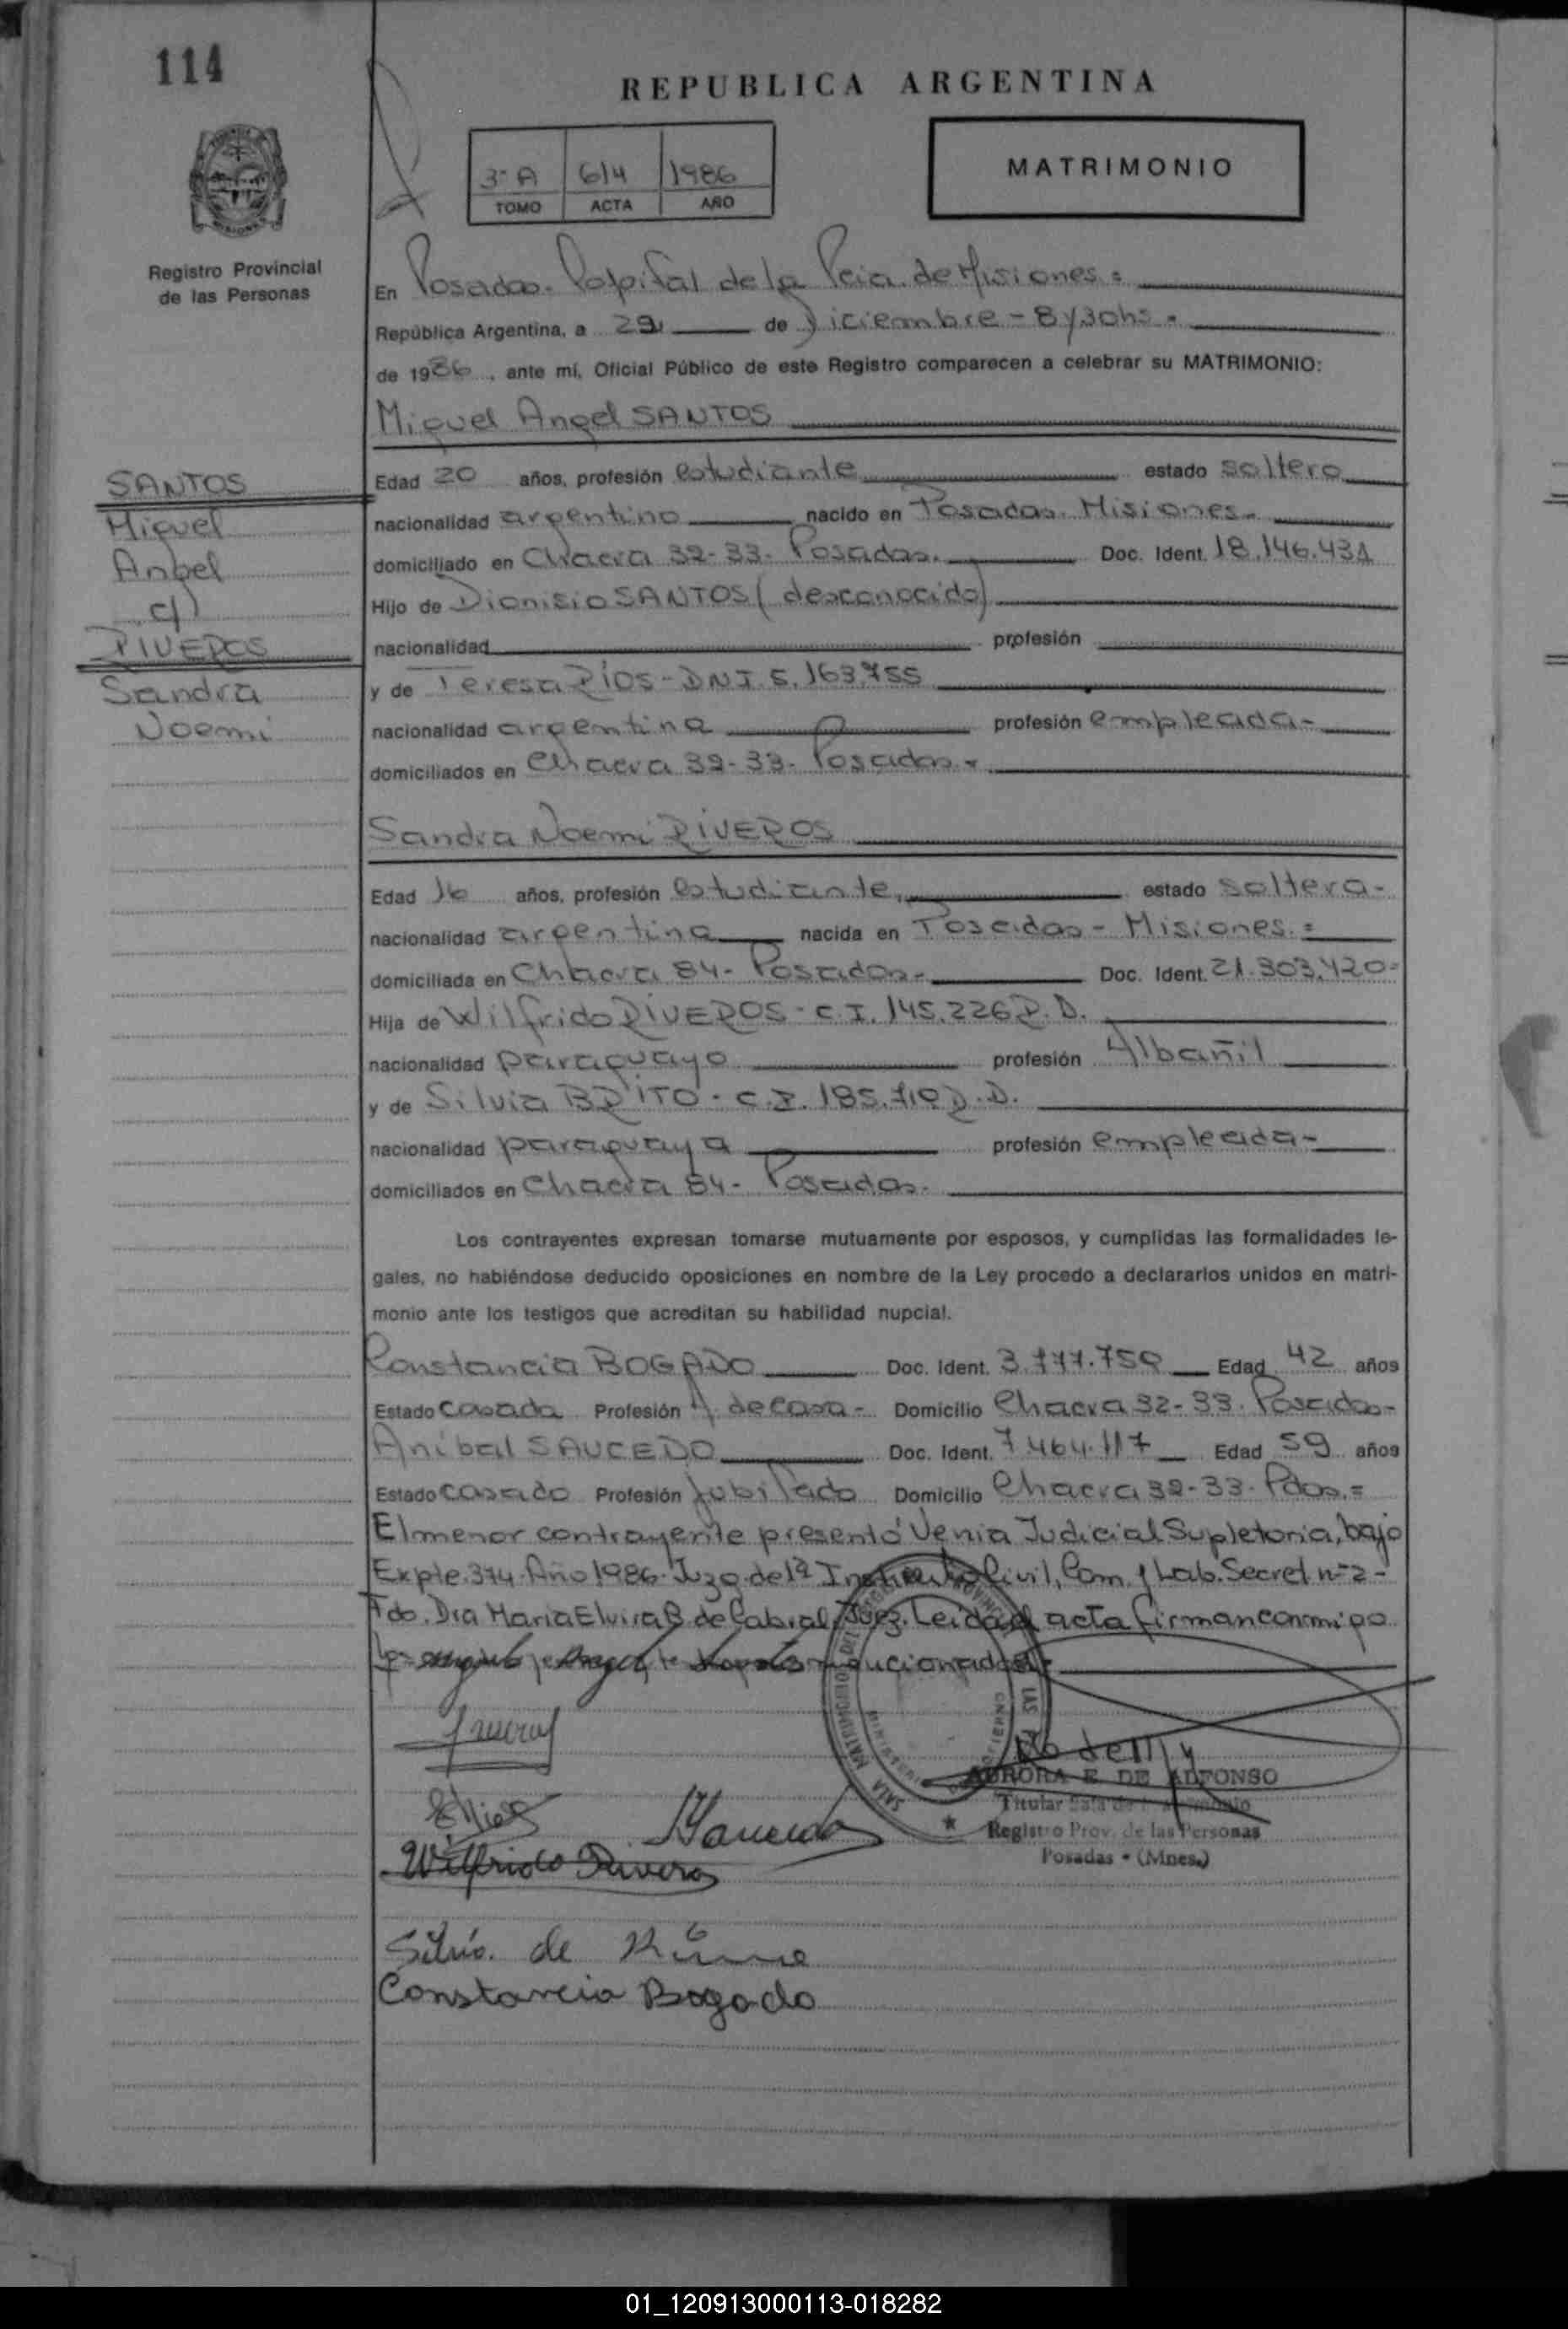 114
REPUBLICA ARGENTINA
3ª A 614 1986
TOMO ACTA AÑO
MATRIMONIO
Registro Provincial
de las Personas
En Posadas. Capital de la Pcia. de Misiones =
República Argentina, a 29 de Diciembre - 8 y 30 hs -
de 1986, ante mí, Oficial Público de este Registro comparecen a celebrar su MATRIMONIO:
Miguel Angel SANTOS
SANTOS
Miguel
Angel
c/
RIVEROS
Sandra
Noemi
Edad 20 años, profesión estudiante estado soltero
nacionalidad argentino nacido en Posadas. Misiones.
domiciliado en Chacra 32-33. Posadas. Doc. Ident. 18.146.431
Hijo de Dionisio SANTOS (desconocido)
nacionalidad profesión
y de Teresa RIOS - DNI 5.163.755
nacionalidad argentina profesión empleada -
domiciliados en Chacra 32-33. Posadas -
Sandra Noemi RIVEROS
Edad 16 años, profesión estudiante, estado soltera -
nacionalidad argentina nacida en Posadas - Misiones. =
domiciliada en Chacra 84 - Posadas - Doc. Ident. 21.303.420 =
Hija de Wilfrido RIVEROS - C.I. 145.226 R.D.
nacionalidad paraguayo profesión Albañil
y de Silvia BRITO - C.I. 185.710 R.D.
nacionalidad paraguaya profesión empleada -
domiciliados en Chacra 84 - Posadas.
Los contrayentes expresan tomarse mutuamente por esposos, y cumplidas las formalidades le-
gales, no habiéndose deducido oposiciones en nombre de la Ley procedo a declararlos unidos en matri-
monio ante los testigos que acreditan su habilidad nupcial.
Constancia BOGADO Doc. Ident. 3.777.750 Edad 42 años
Estado casada Profesión A. de Casa - Domicilio Chacra 32-33. Posadas -
Anibal SAUCEDO Doc. Ident. 7.464.117 Edad 59 años
Estado casado Profesión Jubilado Domicilio Chacra 32-33. Pdas. =
El menor contrayente presentó Venia Judicial Supletoria, bajo
Expte. 374. Año 1986. Juzg. de 1ª Civil, Com. y Lab. Secret. nº 2 -
Fdo. Dra Maria Elvira B. de Cabral, Juez. Leida el acta firman conmigo
mencionados
Wilfrido Riveros
AURORA E. DE ALFONSO
Titular
Registro Prov. de las Personas
Posadas - (Mnes.)
Constancia Bogado
01_120913000113-018282